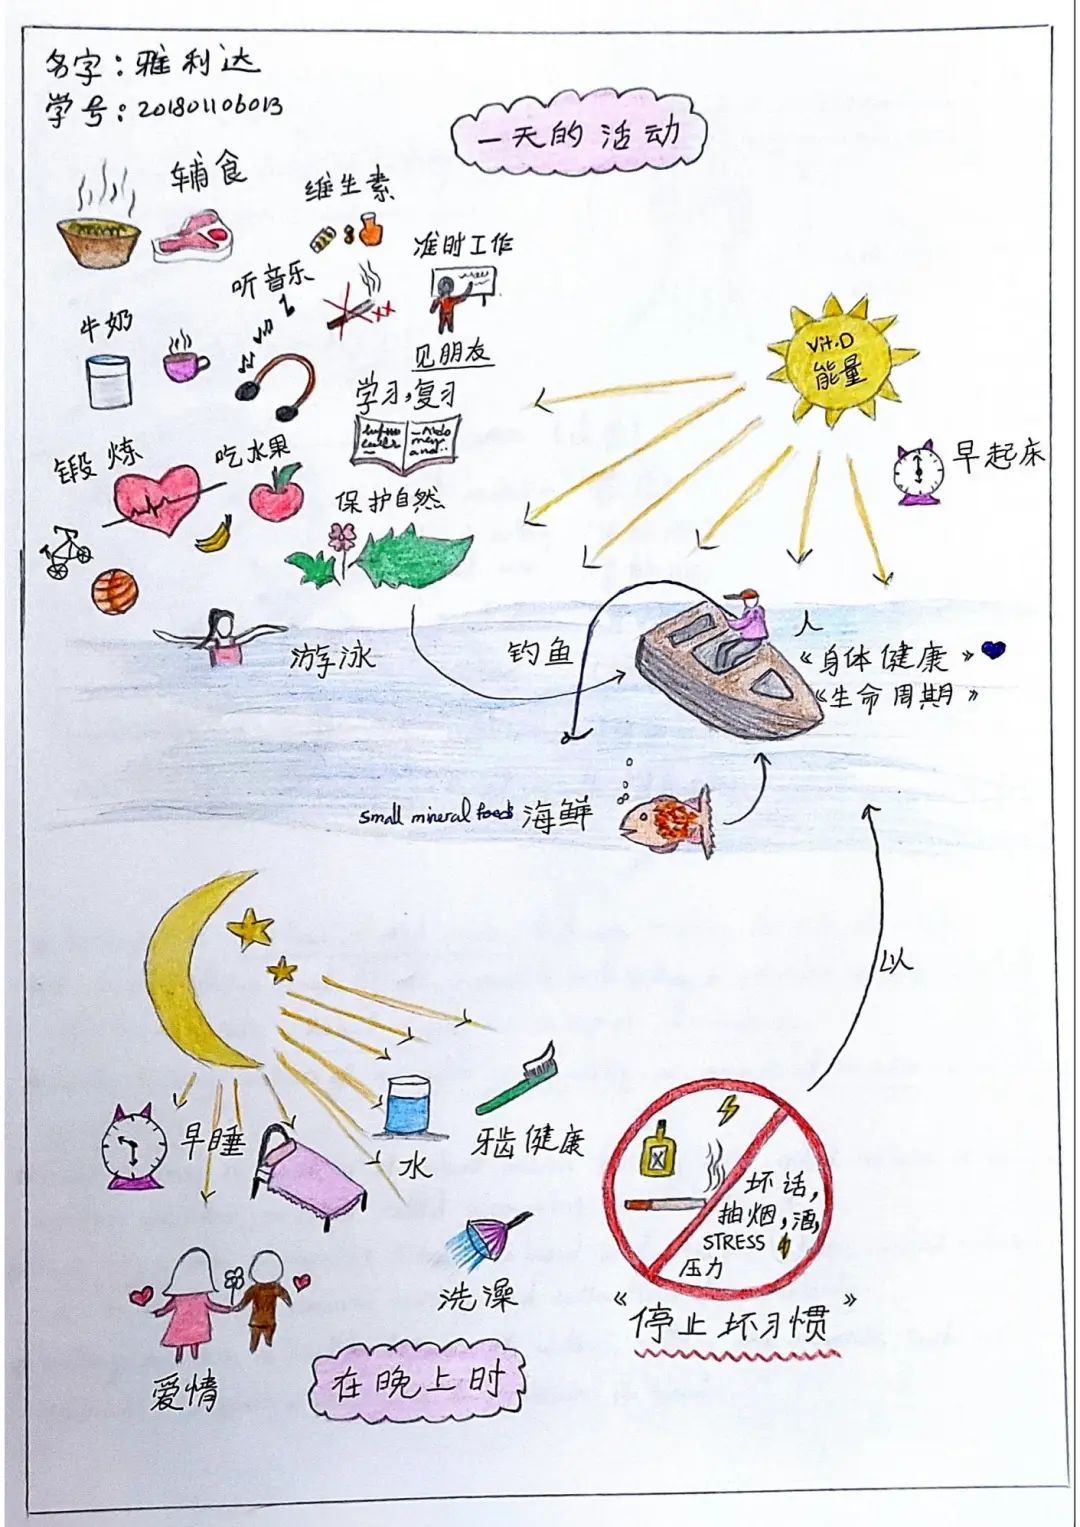 名字：雅利达
学号：201801106013
一天的活动
辅食
维生素
准时工作
听音乐
牛奶
见朋友
学习,复习
Vit.D
能量
锻炼
吃水果
早起床
保护自然
游泳
钓鱼
人
《身体健康》
《生命周期》
small mineral foods 海鲜
以
早睡
水
牙齿健康
坏话,
抽烟,酒,
STRESS
压力
洗澡
《停止坏习惯》
爱情
在晚上时